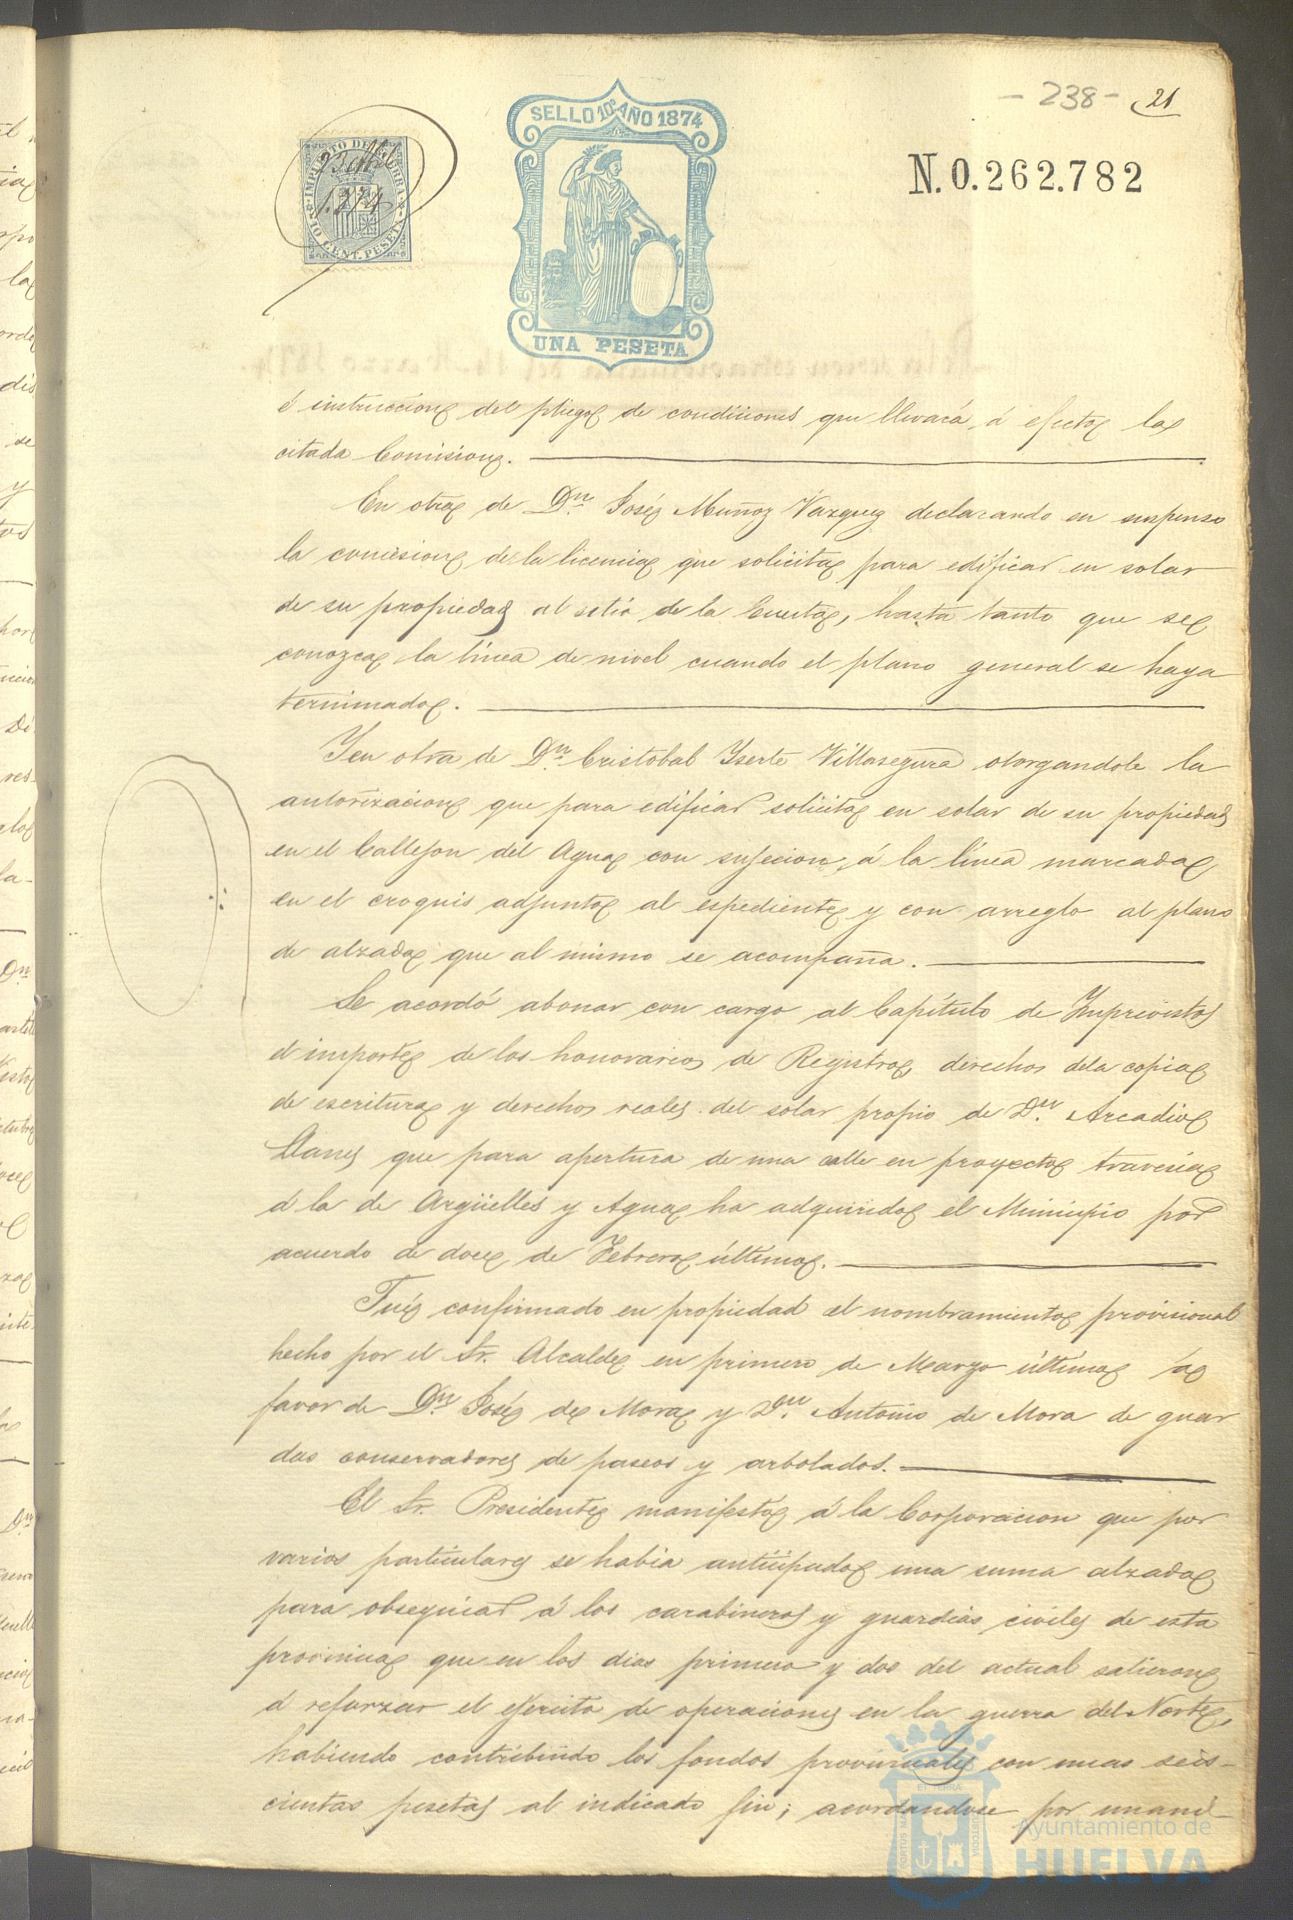 - 238 - 21
IMPUESTO DE GUERRA
23 Abl
1.874
10 CENT. PESETA
SELLO 10º AÑO 1874
UNA PESETA
N.0.262.782
é instruccion del pliego de condiciones que llevará á efecto la
citada Comision.
En otra de Dn. José Muñoz Vazquez declarando en suspenso
la concesion de la licencia que solicita para edificar en solar
de su propiedad al sitio de la Cuesta, hasta tanto que se
conozca la línea de nivel cuando el plano general se haya
terminado.
Y en otra de Dn. Cristobal Yserte Villasegura otorgandole la
autorizacion que para edificar solicita en solar de su propiedad
en el Callejon del Agua con sujecion á la línea marcada
en el croquis adjunto al espediente y con arreglo al plano
de alzada que al mismo se acompaña.
Se acordó abonar con cargo al Capítulo de Imprevistos
el importe de los honorarios de Registro, derechos de la copia
de escritura y derechos reales del solar propio de Dn. Arcadio
Llanes que para apertura de una calle en proyecto travesia
á la de Argüelles y Agua ha adquirido el Municipio por
acuerdo de doce de Febrero último.
Fué confirmado en propiedad el nombramiento provisional
hecho por el Sr. Alcalde en primero de Marzo último á
favor de Dn. José de Mora y Dn. Antonio de Mora de guar
das conservadores de paseos y arbolados.
El Sr. Presidente manifestó á la Corporacion que por
varios particulares se habia anticipado una suma alzada
para obsequiar á los carabineros y guardias civiles de esta
provincia que en los dias primero y dos del actual salieron
á reforzar el ejército de operaciones en la guerra del Norte,
habiendo contribuido los fondos provinciales con unas seis-
cientas pesetas al indicado fin; acordandose por unani-
Ayuntamiento de
HUELVA